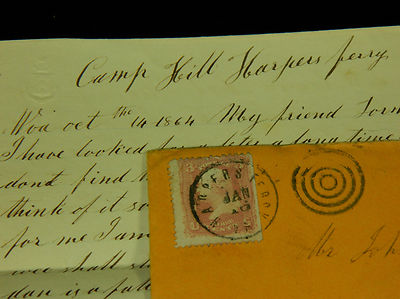 Camp Hill Harpers ferry
Woa oct the 14 1864 My friend
I have looked for a a long time
dont find
think of it so
for me I am
wee shall
dan is a
HARPERS FERRY
JAN
Mr Joh